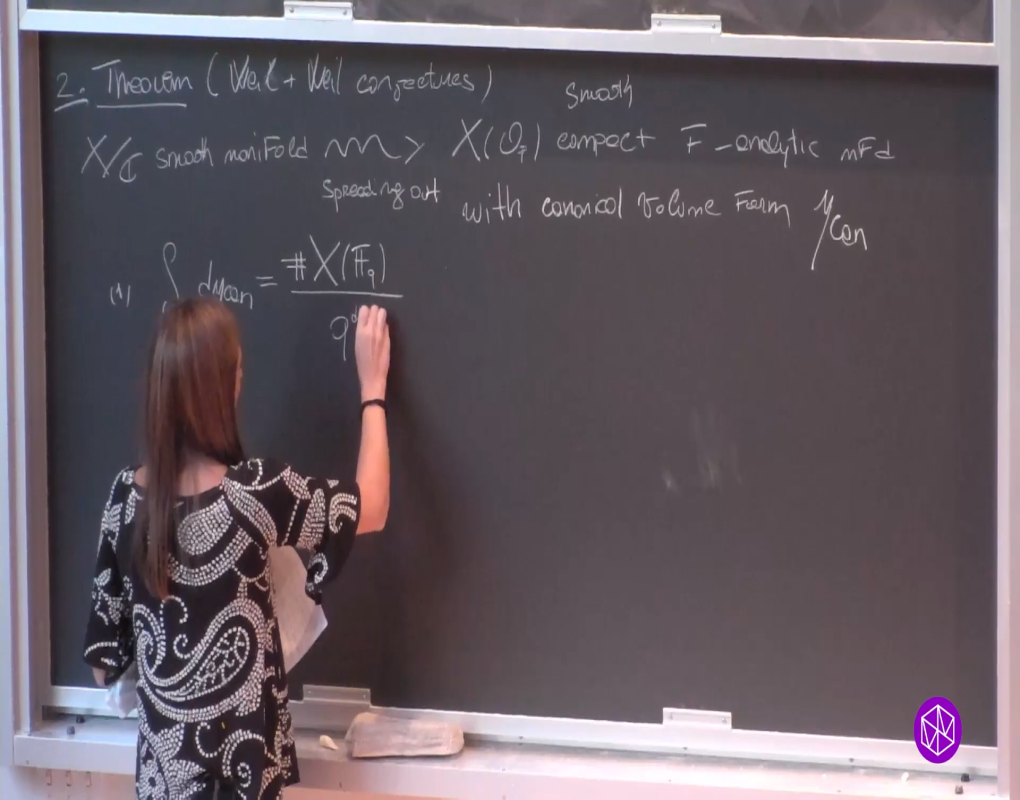 2. Theorem (Weil + Weil conjectures)
smooth
X/ℂ smooth manifold ⇝ X(O_F) compact F-analytic mfd
spreading out
with canonical volume form μ_can
(1) ∫ dμ_can = #X(𝔽_q) / q^d